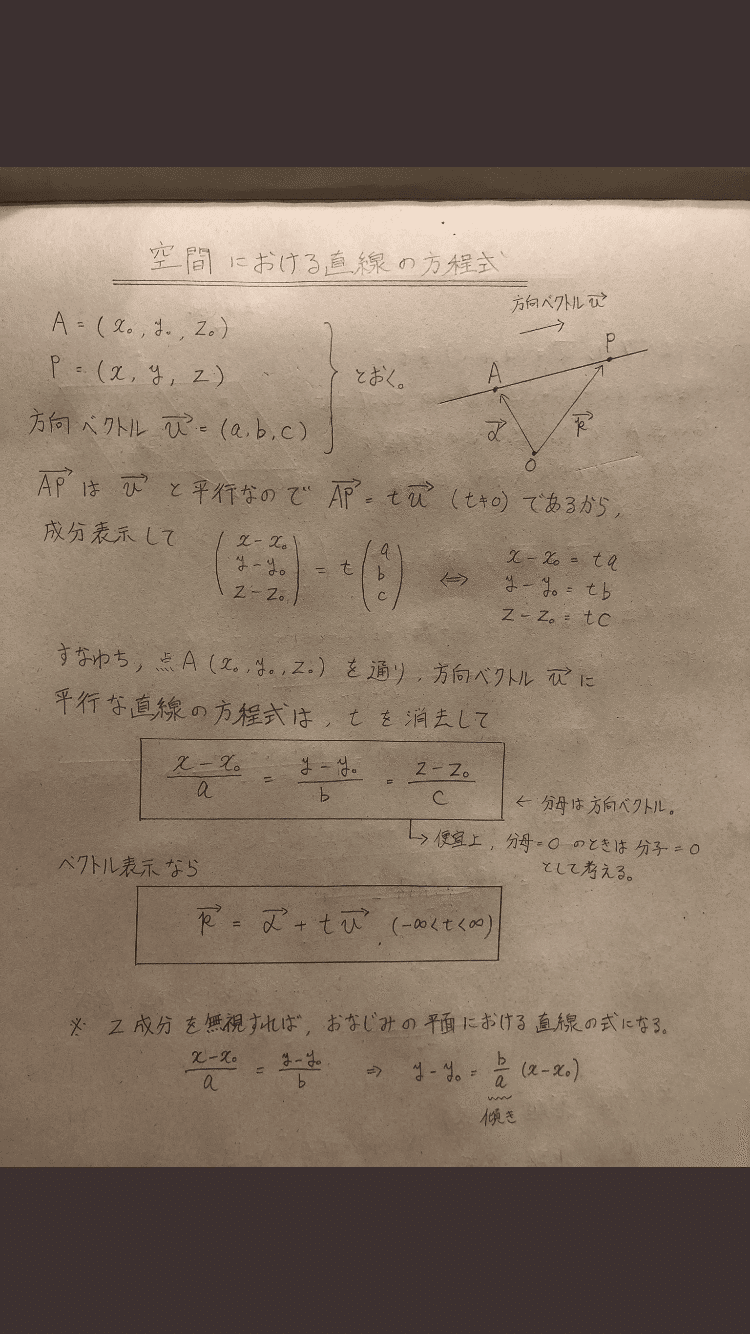 空間における直線の方程式
A = (x₀, y₀, z₀)
P = (x, y, z)
方向ベクトル u→ = (a, b, c)
とおく。
方向ベクトル u→
A
P
O
AP→ は u→ と平行なので AP→ = t u→ (t≠0) であるから,
成分表示して
(x-x₀, y-y₀, z-z₀) = t (a, b, c) ⇔
x-x₀ = ta
y-y₀ = tb
z-z₀ = tc
すなわち, 点A (x₀, y₀, z₀) を通り, 方向ベクトル u→ に
平行な直線の方程式は, t を消去して
(x-x₀)/a = (y-y₀)/b = (z-z₀)/c
← 分母は方向ベクトル。
↳ 便宜上, 分母=0 のときは 分子=0
として考える。
ベクトル表示なら
= + t u→ (-∞<t<∞)
※ z成分を無視すれば, おなじみの平面における直線の式になる。
(x-x₀)/a = (y-y₀)/b ⇒ y-y₀ = b/a (x-x₀)
傾き